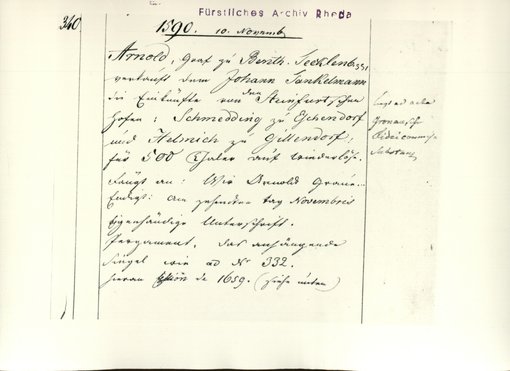 Fürstliches Archiv Rheda
340
1590. 10. Novemb
Arnold, Graf zu Benth. Tecklenb.
verkauft dem JohannÜnkelmann
die Einkünfte von den Steinfurtschen
Höfen: Schmedding zu Eschendorf
und Helmich zu Gellendorf,
für 500 Thaler auf Wiederlöse.
Fängt an: Wir Arnold Grave...
Endigt: am zehenden tag Novembris
Eigenhändige Unterschrift.
Pergament, das anhängende
Siegel wie ad No 332.
hieran de 1659. (siehe unten)
liegt ad acta
Gronausche
Fideicommiss